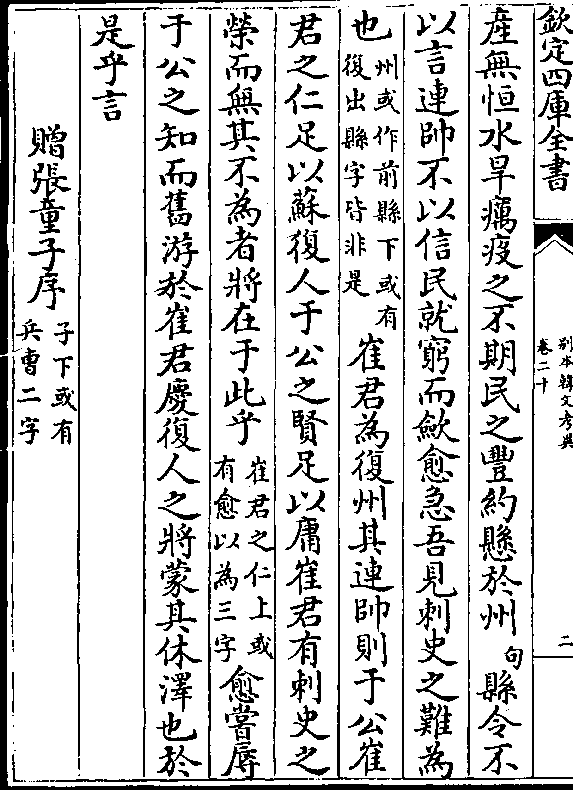 欽定四庫全書
别本韓文考異
卷二十
二
產無恒水旱癘疫之不期民之豐約懸於州句縣令不
以言連帥不以信民就窮而歛愈急吾見刺史之難為
也州或作前縣下或有復出縣字皆非是崔君為復州其連帥則于公崔
君之仁足以蘇復人于公之賢足以庸崔君有刺史之
榮而無其不為者將在于此乎崔君之仁上或有愈以為三字愈嘗辱
于公之知而舊游於崔君慶復人之將蒙其休澤也於
是乎言
贈張童子序子下或有兵曹二字